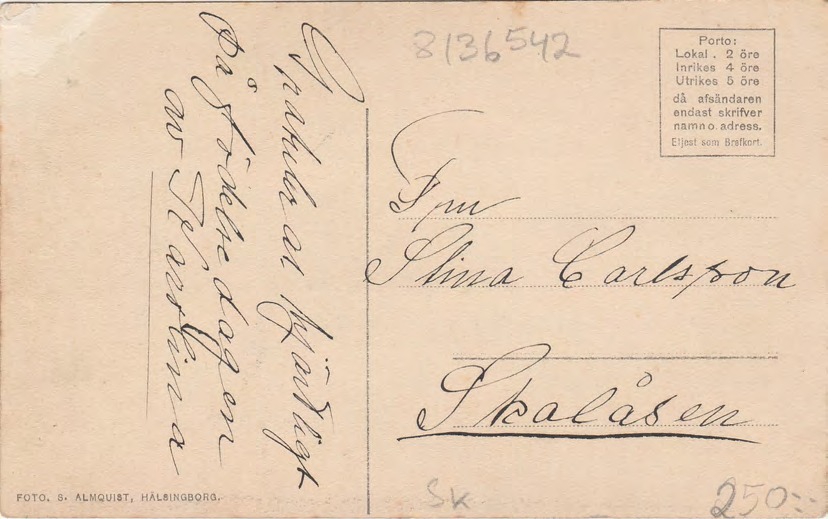 Gratuleras hjärtligt
På födelsedagen
av Karolina
8136542
Porto:
Lokal . 2 öre
Inrikes 4 öre
Utrikes 5 öre
då afsändaren
endast skrifver
namn o. adress.
Eljest som Brefkort.
Frn
Stina Carlsson
Skalåsen
FOTO. S. ALMQUIST, HÄLSINGBORG.
SK
250:-